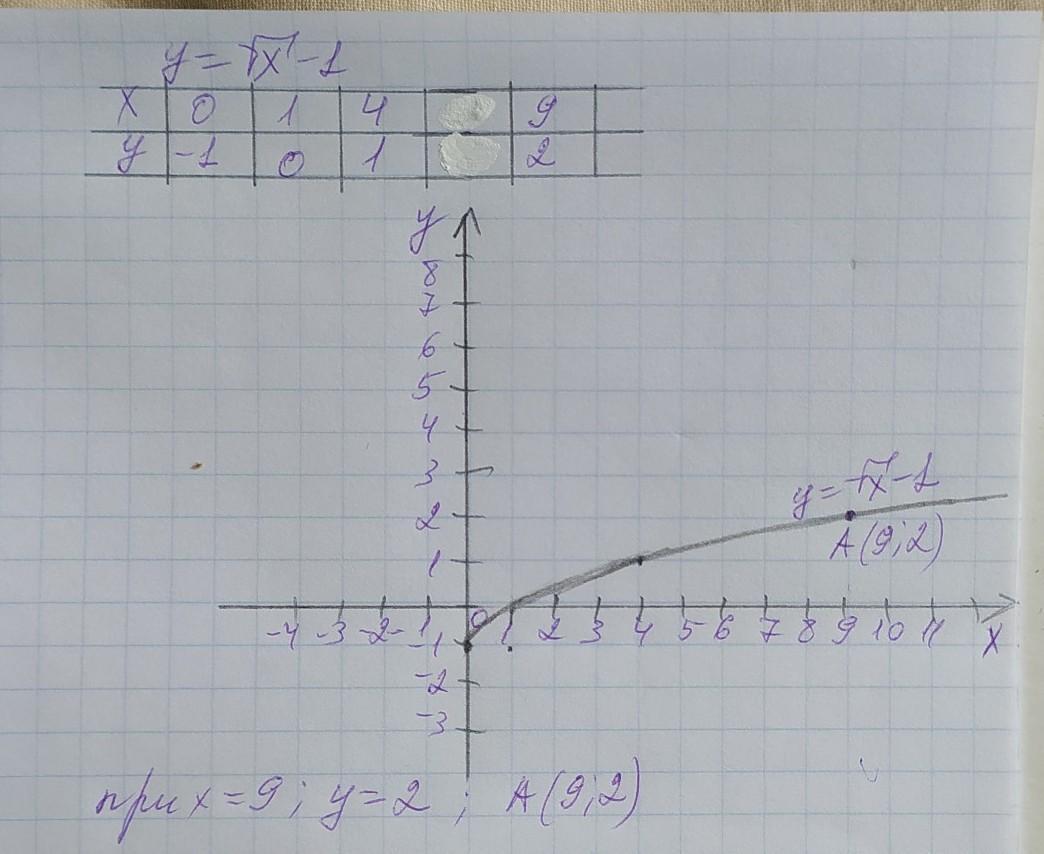 y = √x - 1
x 0 1 4 9
y -1 0 1 2
y
8
7
6
5
4
3
2
1
y = √x - 1
A(9;2)
-4 -3 -2 -1 0 1 2 3 4 5 6 7 8 9 10 11 x
-1
-2
-3
при x = 9; y = 2; A(9;2)